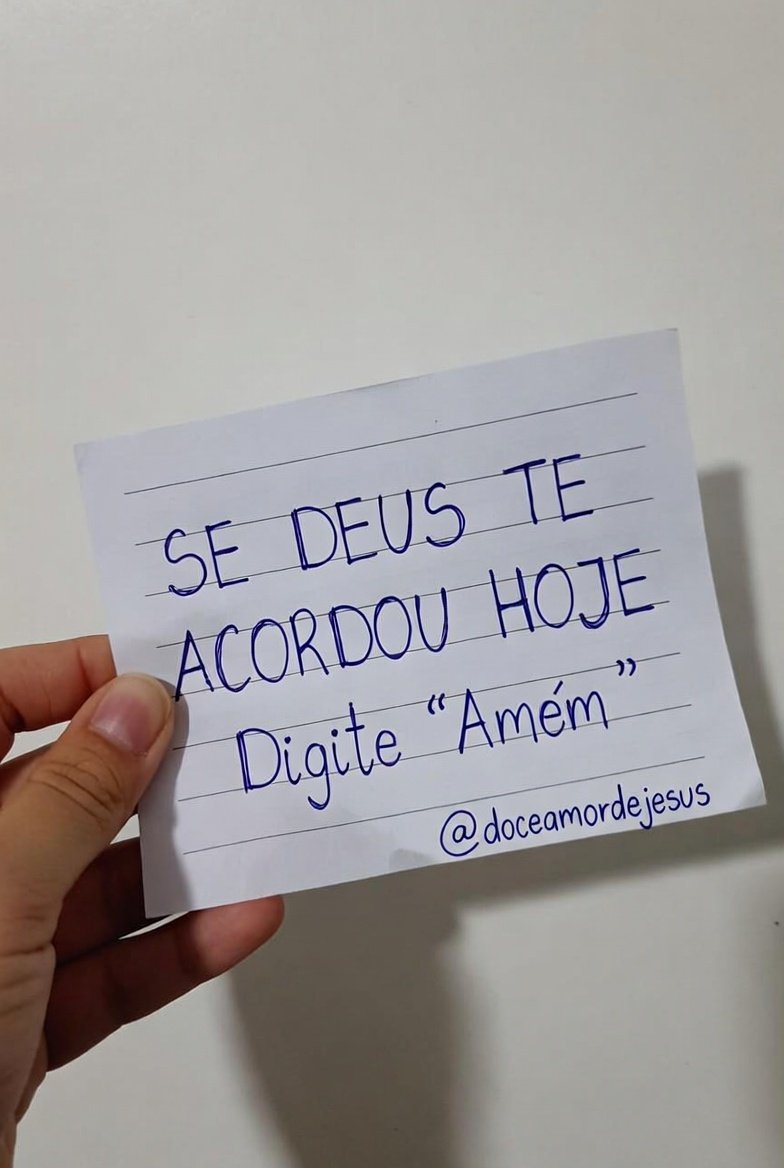 SE DEUS TE
ACORDOU HOJE
Digite “Amém”
@doceamordejesus